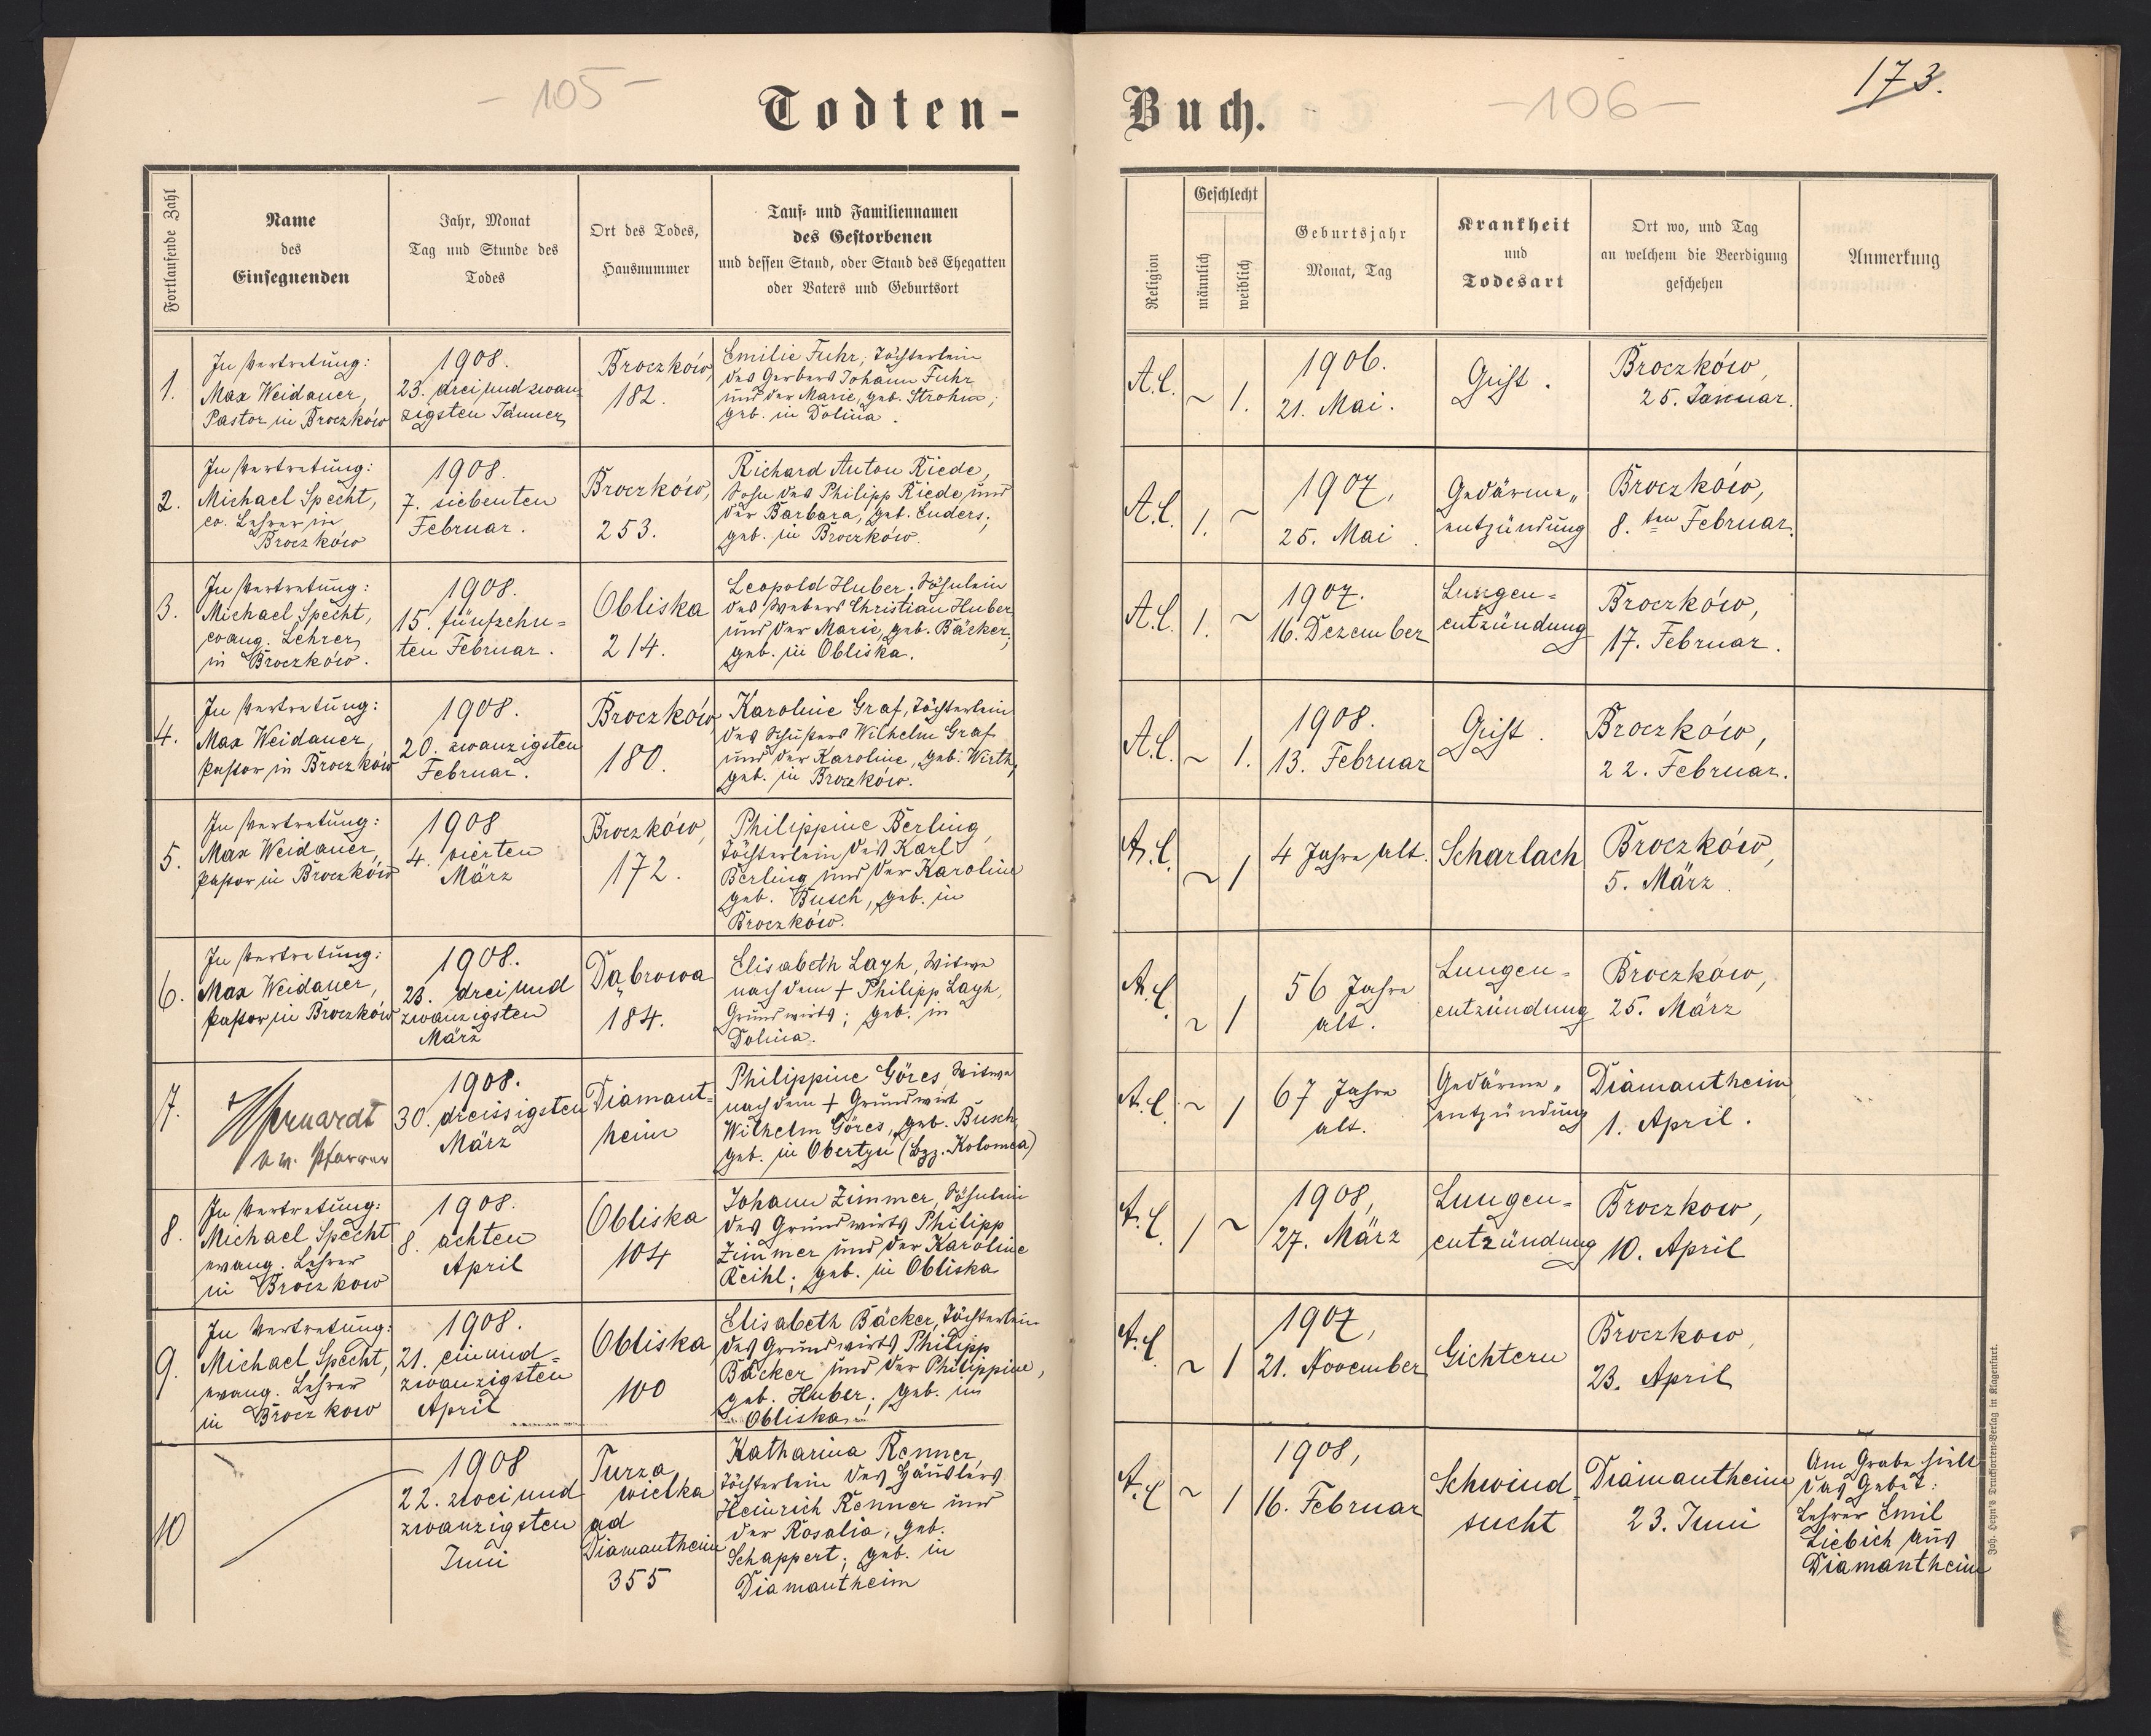 - 105 -
Todten-
Fortlaufende Zahl
Name
des
Einsegnenden
Jahr, Monat
Tag und Stunde des
Todes
Ort des Todes,
Hausnummer
Tauf- und Familiennamen
des Gestorbenen
und dessen Stand, oder Stand des Ehegatten
oder Vaters und Geburtsort
1.
In Vertretung:
Max Weidauer,
Pastor in Broczków
1908.
23. dreiundzwan-
zigsten Jänner
Broczków,
182.
Emilie Fuhr, Töchterlein
des Gerbers Johann Fuhr
und der Marie, geb. Strohm;
geb. in Dolina.
2.
In Vertretung:
Michael Specht,
ev. Lehrer in
Broczków
1908.
7. siebenten
Februar.
Broczków,
253.
Richard Anton Riede,
Sohn des Philipp Riede und
der Barbara, geb. Enders;
geb. in Broczków.
3.
In Vertretung:
Michael Specht,
evang. Lehrer
in Broczków.
1908.
15. fünfzehn=
ten Februar.
Obliska
214.
Leopold Huber, Söhnlein
des Webers Christian Huber
und der Marie, geb. Bäcker;
geb. in Obliska.
4.
In Vertretung:
Max Weidauer,
Pastor in Broczków
1908.
20. zwanzigsten
Februar.
Broczków
180.
Karoline Graf, Töchterlein
des Schusters Wilhelm Graf
und der Karoline, geb. Wirth,
geb. in Broczków.
5.
In Vertretung:
Max Weidauer,
Pastor in Broczków
1908
4. vierten
März
Broczków,
172.
Philippine Berling,
Töchterlein des Karl
Berling und der Karoline
geb. Busch, geb. in
Broczków.
6.
In Vertretung:
Max Weidauer,
Pastor in Broczków
1908.
23. dreiund
zwanzigsten
März
Dąbrowa
184.
Elisabeth Layh, Witwe
nach dem + Philipp Layh,
Grundwirts; geb. in
Dolina.
7.
Pfarrer
1908.
30. dreissigsten
März
Diamant=
heim
Philippine Göres, Witwe
nach dem + Grundwirt
Wilhelm Göres, geb. Busch
geb. in Obertyn (Bzz. Kolomea)
8.
In Vertretung:
Michael Specht
evang. Lehrer
in Broczkow
1908.
8. achten
April
Obliska
104
Johann Zimmer, Söhnlein
des Grundwirts Philipp
Zimmer und der Karoline
Reihl; geb. in Obliska
9.
In Vertretung:
Michael Specht,
evang. Lehrer
in Broczkow
1908.
21. einund=
zwanzigsten
April
Obliska
100
Elisabeth Bäcker, Töchterlein
des Grundwirts Philipp
Bäcker und der Philippine,
geb. Huber; geb. in
Obliska
10
1908
22. zweiund
zwanzigsten
Juni
Turza
wielka
ad
Diamantheim
355
Katharina Renner,
Töchterlein des Häuslers
Heinrich Renner und
der Rosalia, geb.
Schappert; geb. in
Diamantheim
Buch.
- 106 -
173.
Religion
Geschlecht
männlich
weiblich
Geburtsjahr
Monat, Tag
Krankheit
und
Todesart
Ort wo, und Tag
an welchem die Beerdigung
geschehen
Anmerkung
A.C. ~ 1.
1906.
21. Mai.
Gicht.
Broczków,
25. Januar.
A.C. 1. ~
1907,
25. Mai.
Gedärme„
entzündung
Broczków,
8.ten Februar.
A.C. 1. ~
1907.
16. Dezember
Lungen=
entzündung
Broczków,
17. Februar.
A.C. ~ 1.
1908.
13. Februar
Gicht.
Broczków,
22. Februar.
A.C. ~ 1
4 Jahre alt.
Scharlach
Broczków,
5. März.
A.C. ~ 1
56 Jahre
alt.
Lungen=
entzündung
Broczków,
25. März
A.C. ~ 1
67 Jahre
alt.
Gedärme„
entzündung
Diamantheim
1. April.
A.C. 1 ~
1908,
27. März
Lungen=
entzündung
Broczkow,
10. April
A.C. ~ 1
1907,
21. November
Gichtern
Broczkow,
23. April
A.C. ~ 1
1908,
16. Februar
Schwind
sucht
Diamantheim
23. Juni
Am Grabe hielt
das Gebet:
Lehrer Emil
Liebich aus
Diamantheim
Joh. Leyn's Drucksorten-Verlag in Klagenfurt.